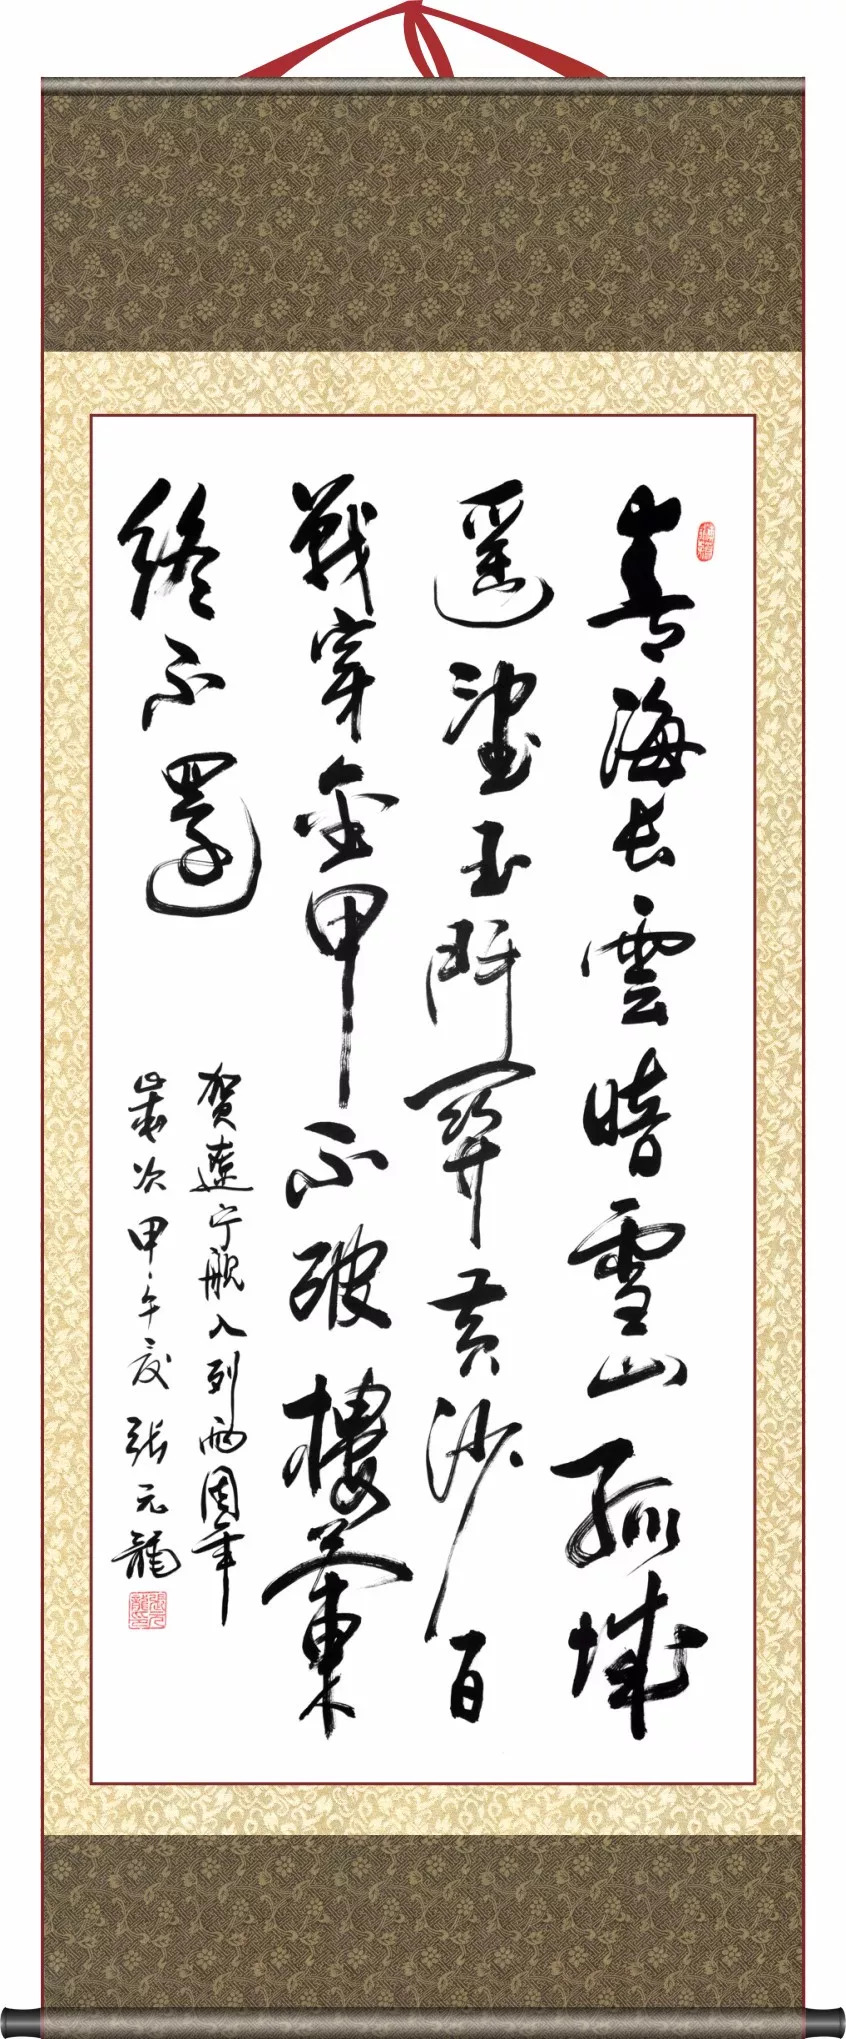 青海长雲暗雪山孤城
遥望玉門關黄沙百
戰穿金甲不破樓蘭
終不還
贺遼宁舰入列两周年
歲次甲午夏 张元龍
張元龍印